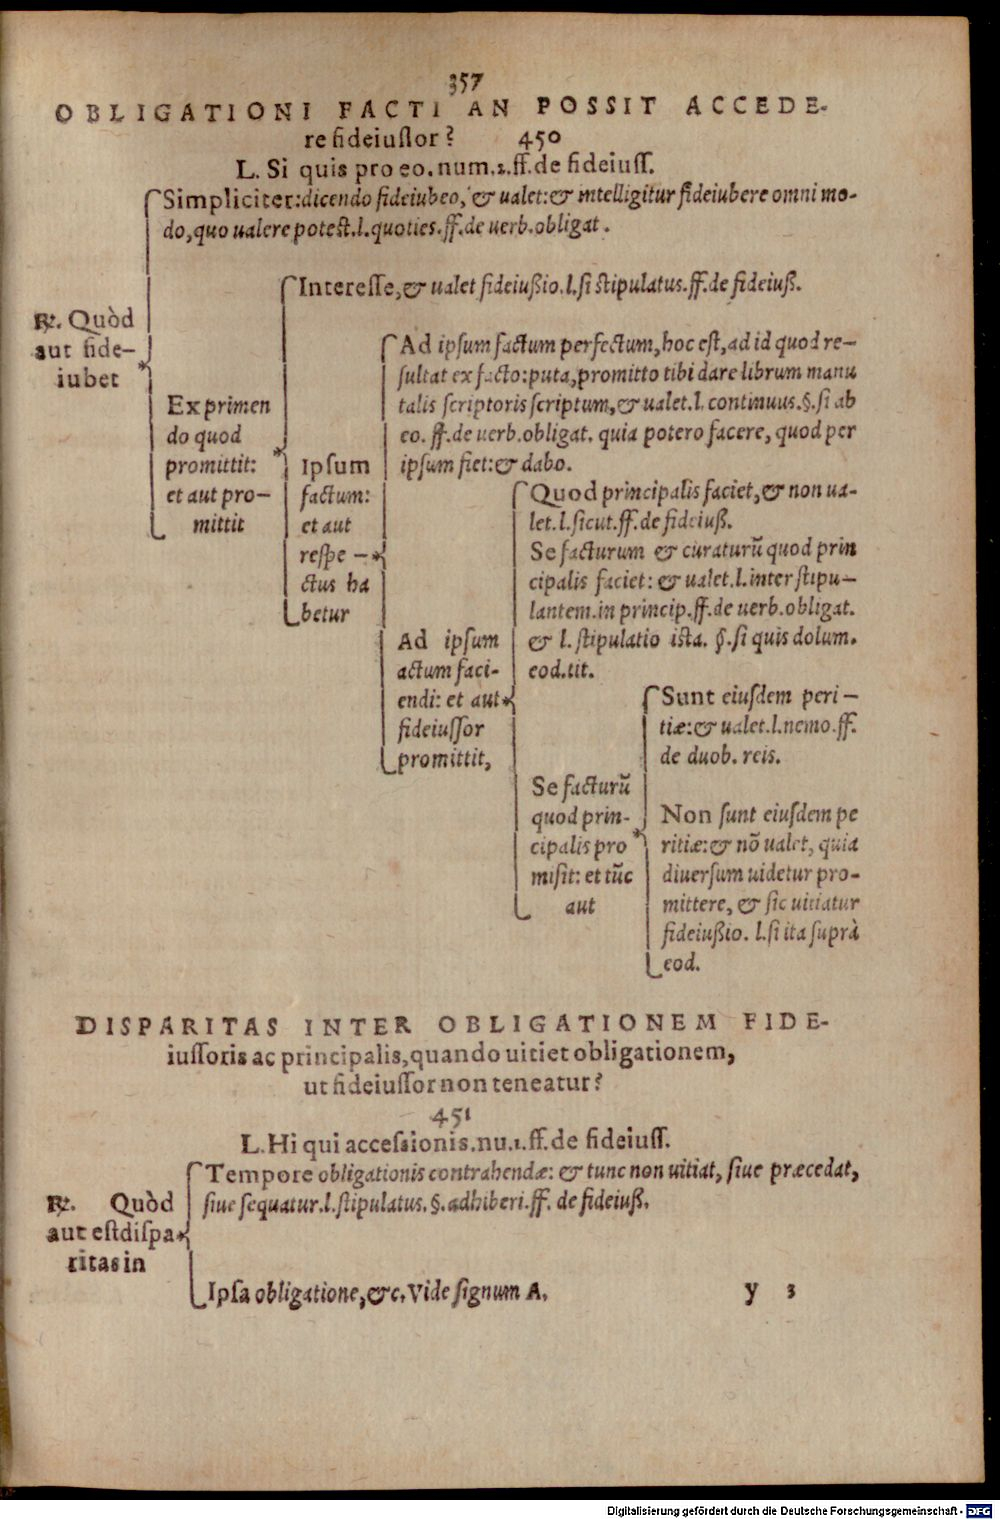 357
OBLIGATIONI FACTI AN POSSIT ACCEDE-
re fideiussor? 450
L. Si quis pro eo. num.1.ff.de fideiuss.
Simpliciter: dicendo fideiubeo, & ualet: & intelligitur fideiubere omni mo-
do, quo ualere potest. l. quoties. ff. de uerb. obligat.
℞. Quòd
aut fide–
iubet
Exprimen
do quod
promittit:
et aut pro–
mittit
Interesse, & ualet fideiußio. l. si stipulatus. ff. de fideiuß.
Ipsum
factum:
et aut
respe –
ctus ha
betur
Ad ipsum factum perfectum, hoc est, ad id quod re–
sultat ex facto: puta, promitto tibi dare librum manu
talis scriptoris scriptum, & ualet. l. continuus. §. si ab
eo. ff. de uerb. obligat. quia potero facere, quod per
ipsum fiet: & dabo.
Ad ipsum
actum faci-
endi: et aut
fideiussor
promittit,
Quod principalis faciet, & non ua-
let. l. sicut. ff. de fideiuß.
Se facturum & curaturũ quod prin
cipalis faciet: & ualet. l. inter stipu–
lantem. in princip. ff. de uerb. obligat.
& l. stipulatio ista. §. si quis dolum.
eod. tit.
Se facturũ
quod prin-
cipalis pro
misit: et tũc
aut
Sunt eiusdem peri–
tiæ: & ualet. l. nemo. ff.
de duob. reis.
Non sunt eiusdem pe
ritiæ: & nõ ualet, quia
diuersum uidetur pro-
mittere, & sic uitiatur
fideiußio. l. si ita suprà
eod.
DISPARITAS INTER OBLIGATIONEM FIDE-
iussoris ac principalis, quando uitiet obligationem,
ut fideiussor non teneatur?
451
L. Hi qui accessionis. nu.1. ff. de fideiuss.
Tempore obligationis contrahendæ: & tunc non uitiat, siue præcedat,
siue sequatur. l. stipulatus. §. adhiberi. ff. de fideiuß.
℞. Quòd
aut est dispa
ritas in
Ipsa obligatione, &c. Vide signum A.
y 3
Digitalisierung gefördert durch die Deutsche Forschungsgemeinschaft - DFG